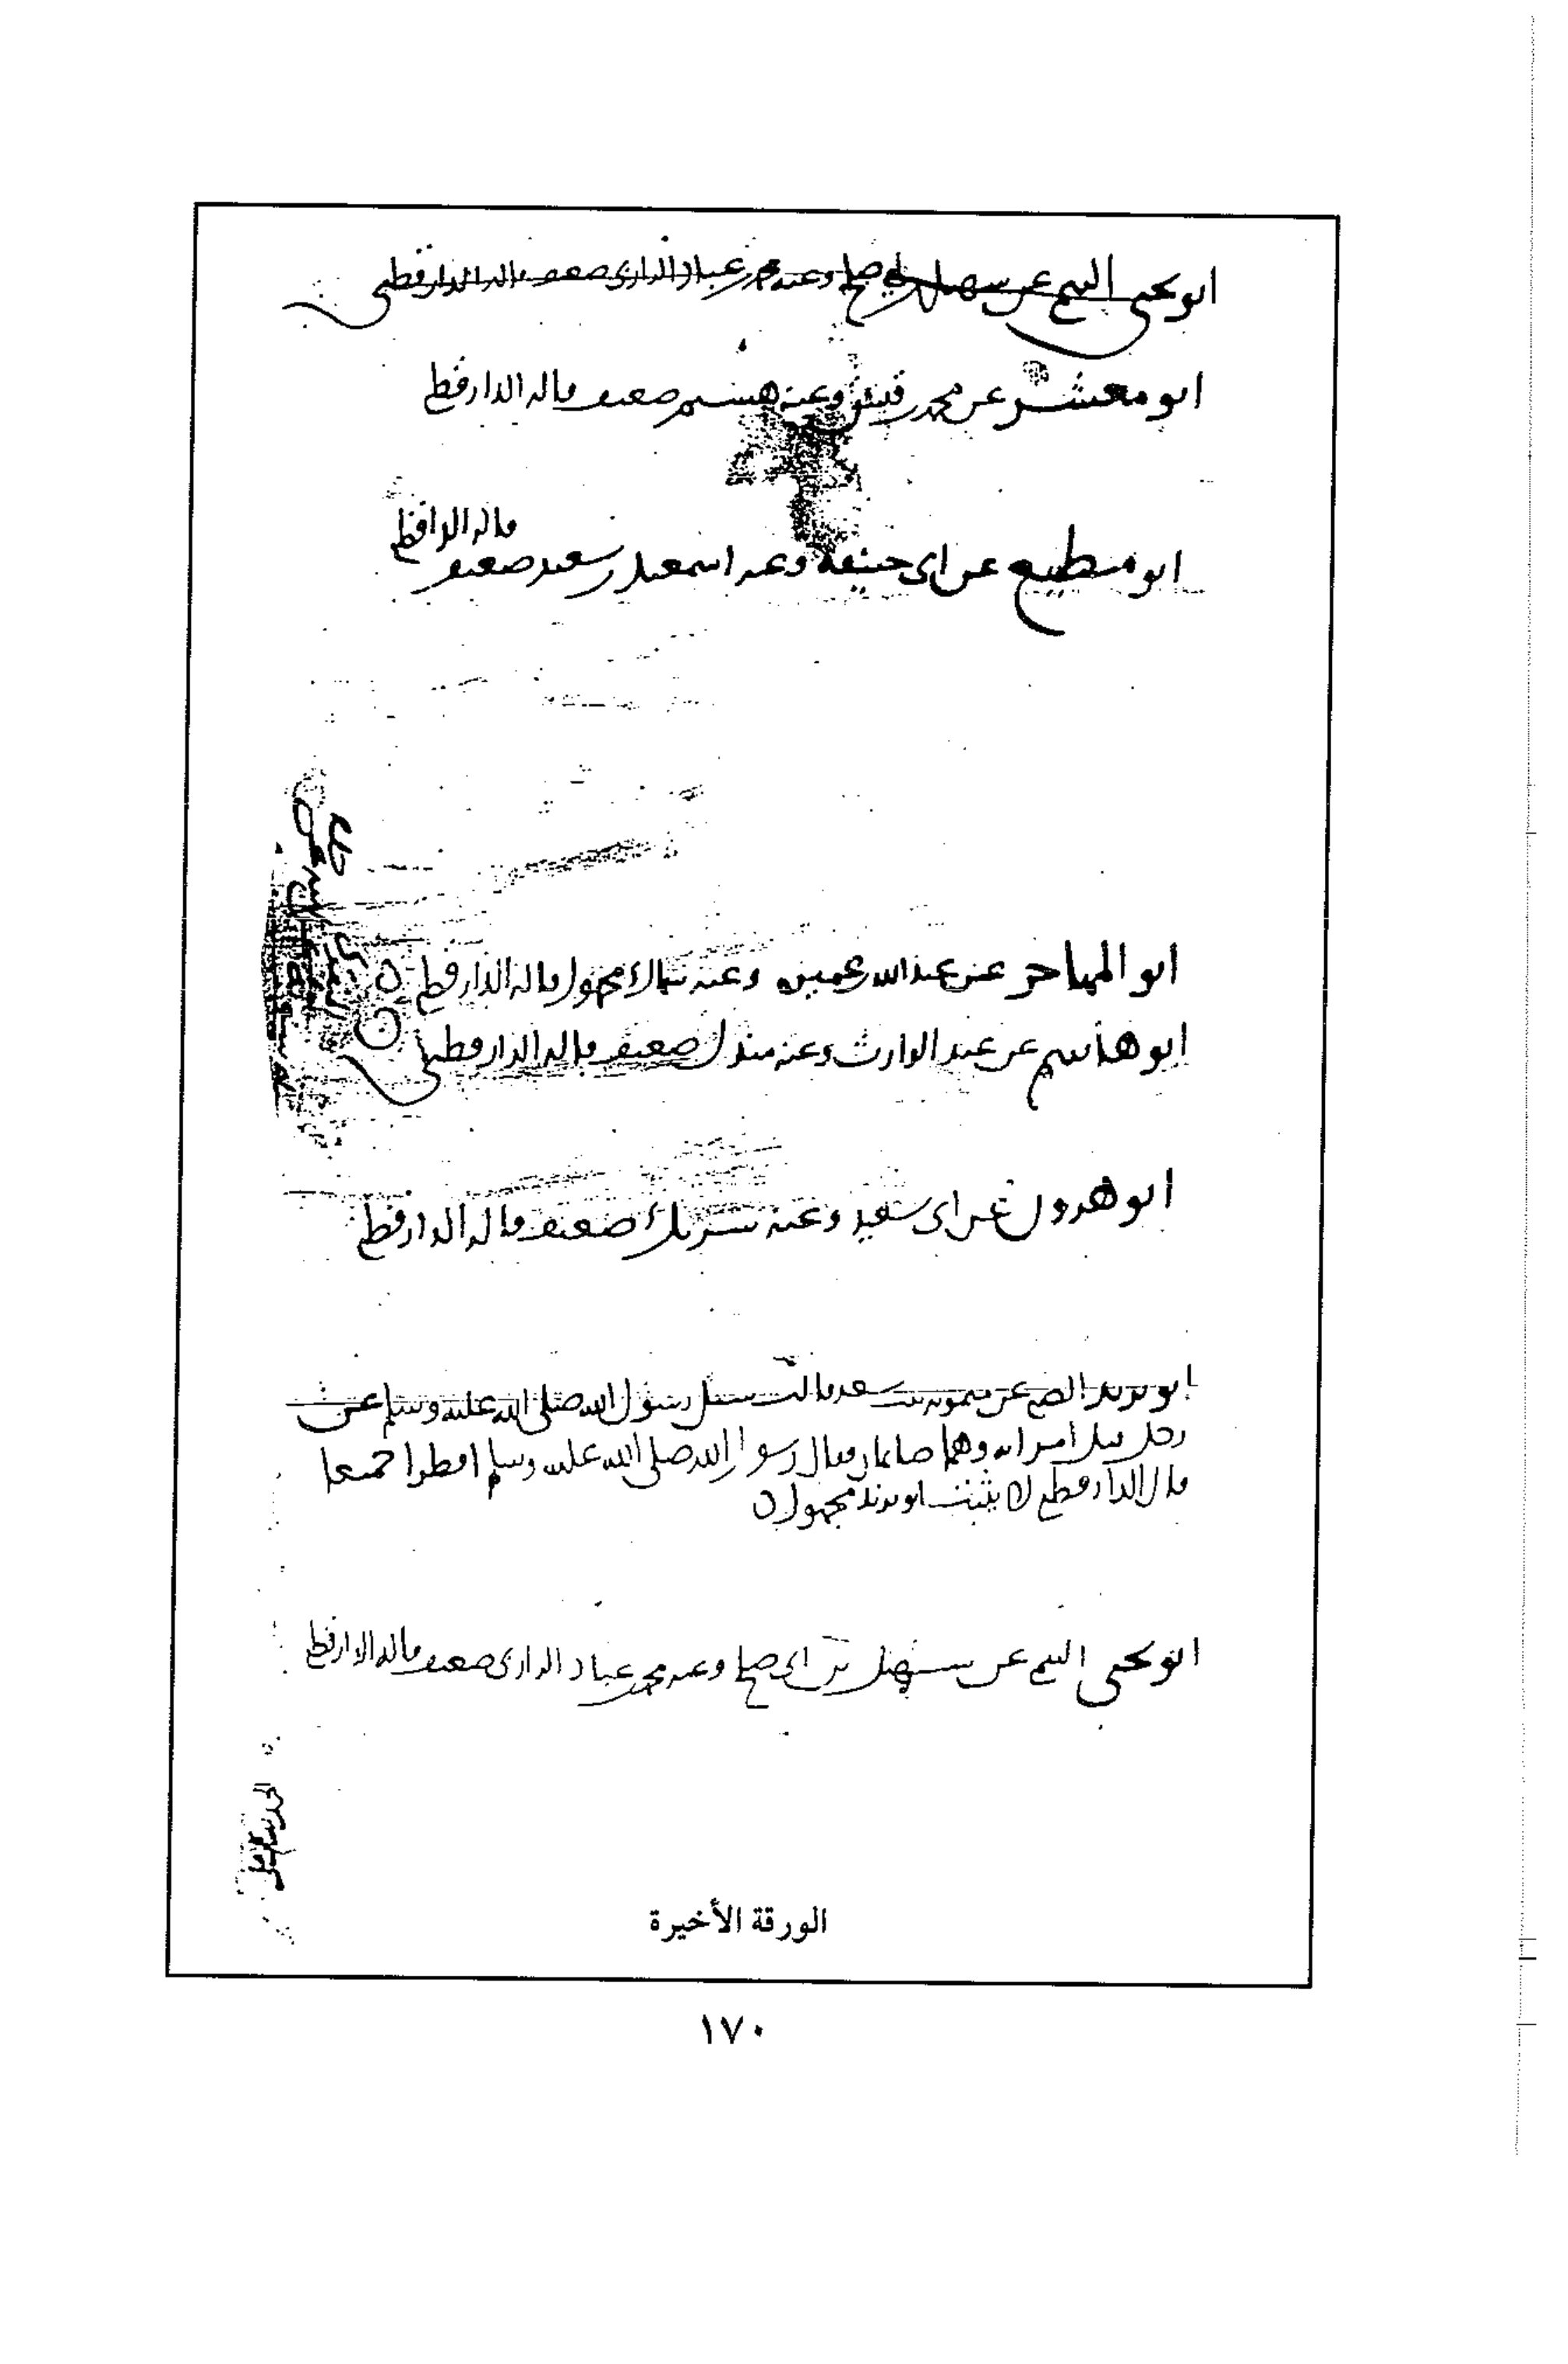 ابو يحيى التيمي عن سهيل بن ابي صالح وعنه محمد بن عباد الداري ضعيف قاله الدارقطني
ابو معشر عن محمد بن قيس وعنه هشيم ضعيف قاله الدارقطني
قاله الدارقطني
ابو مطيع عن ابي حنيفة وعنه اسمعيل بن سعيد ضعيف
ابو المهاجر عن عبد الله بن عميرة وعنه سماك مجهول قاله الدارقطني
ابو هاشم عن عبد الوارث وعنه مندل ضعيف قاله الدارقطني
ابو هرون عن ابي سعيد وعنه شريك ضعيف قاله الدارقطني
ابو يزيد الضبي عن ميمونة بنت سعد قالت سئل رسول الله صلى الله عليه وسلم عن
رجل قبل امراته وهما صائمان فقال رسول الله صلى الله عليه وسلم افطرا جميعا
قال الدارقطني لا يثبت ابو يزيد مجهول
ابو يحيى التيمي عن سهيل بن ابي صالح وعنه محمد بن عباد الداري ضعيف قاله الدارقطني
الورقة الأخيرة
١٧٠